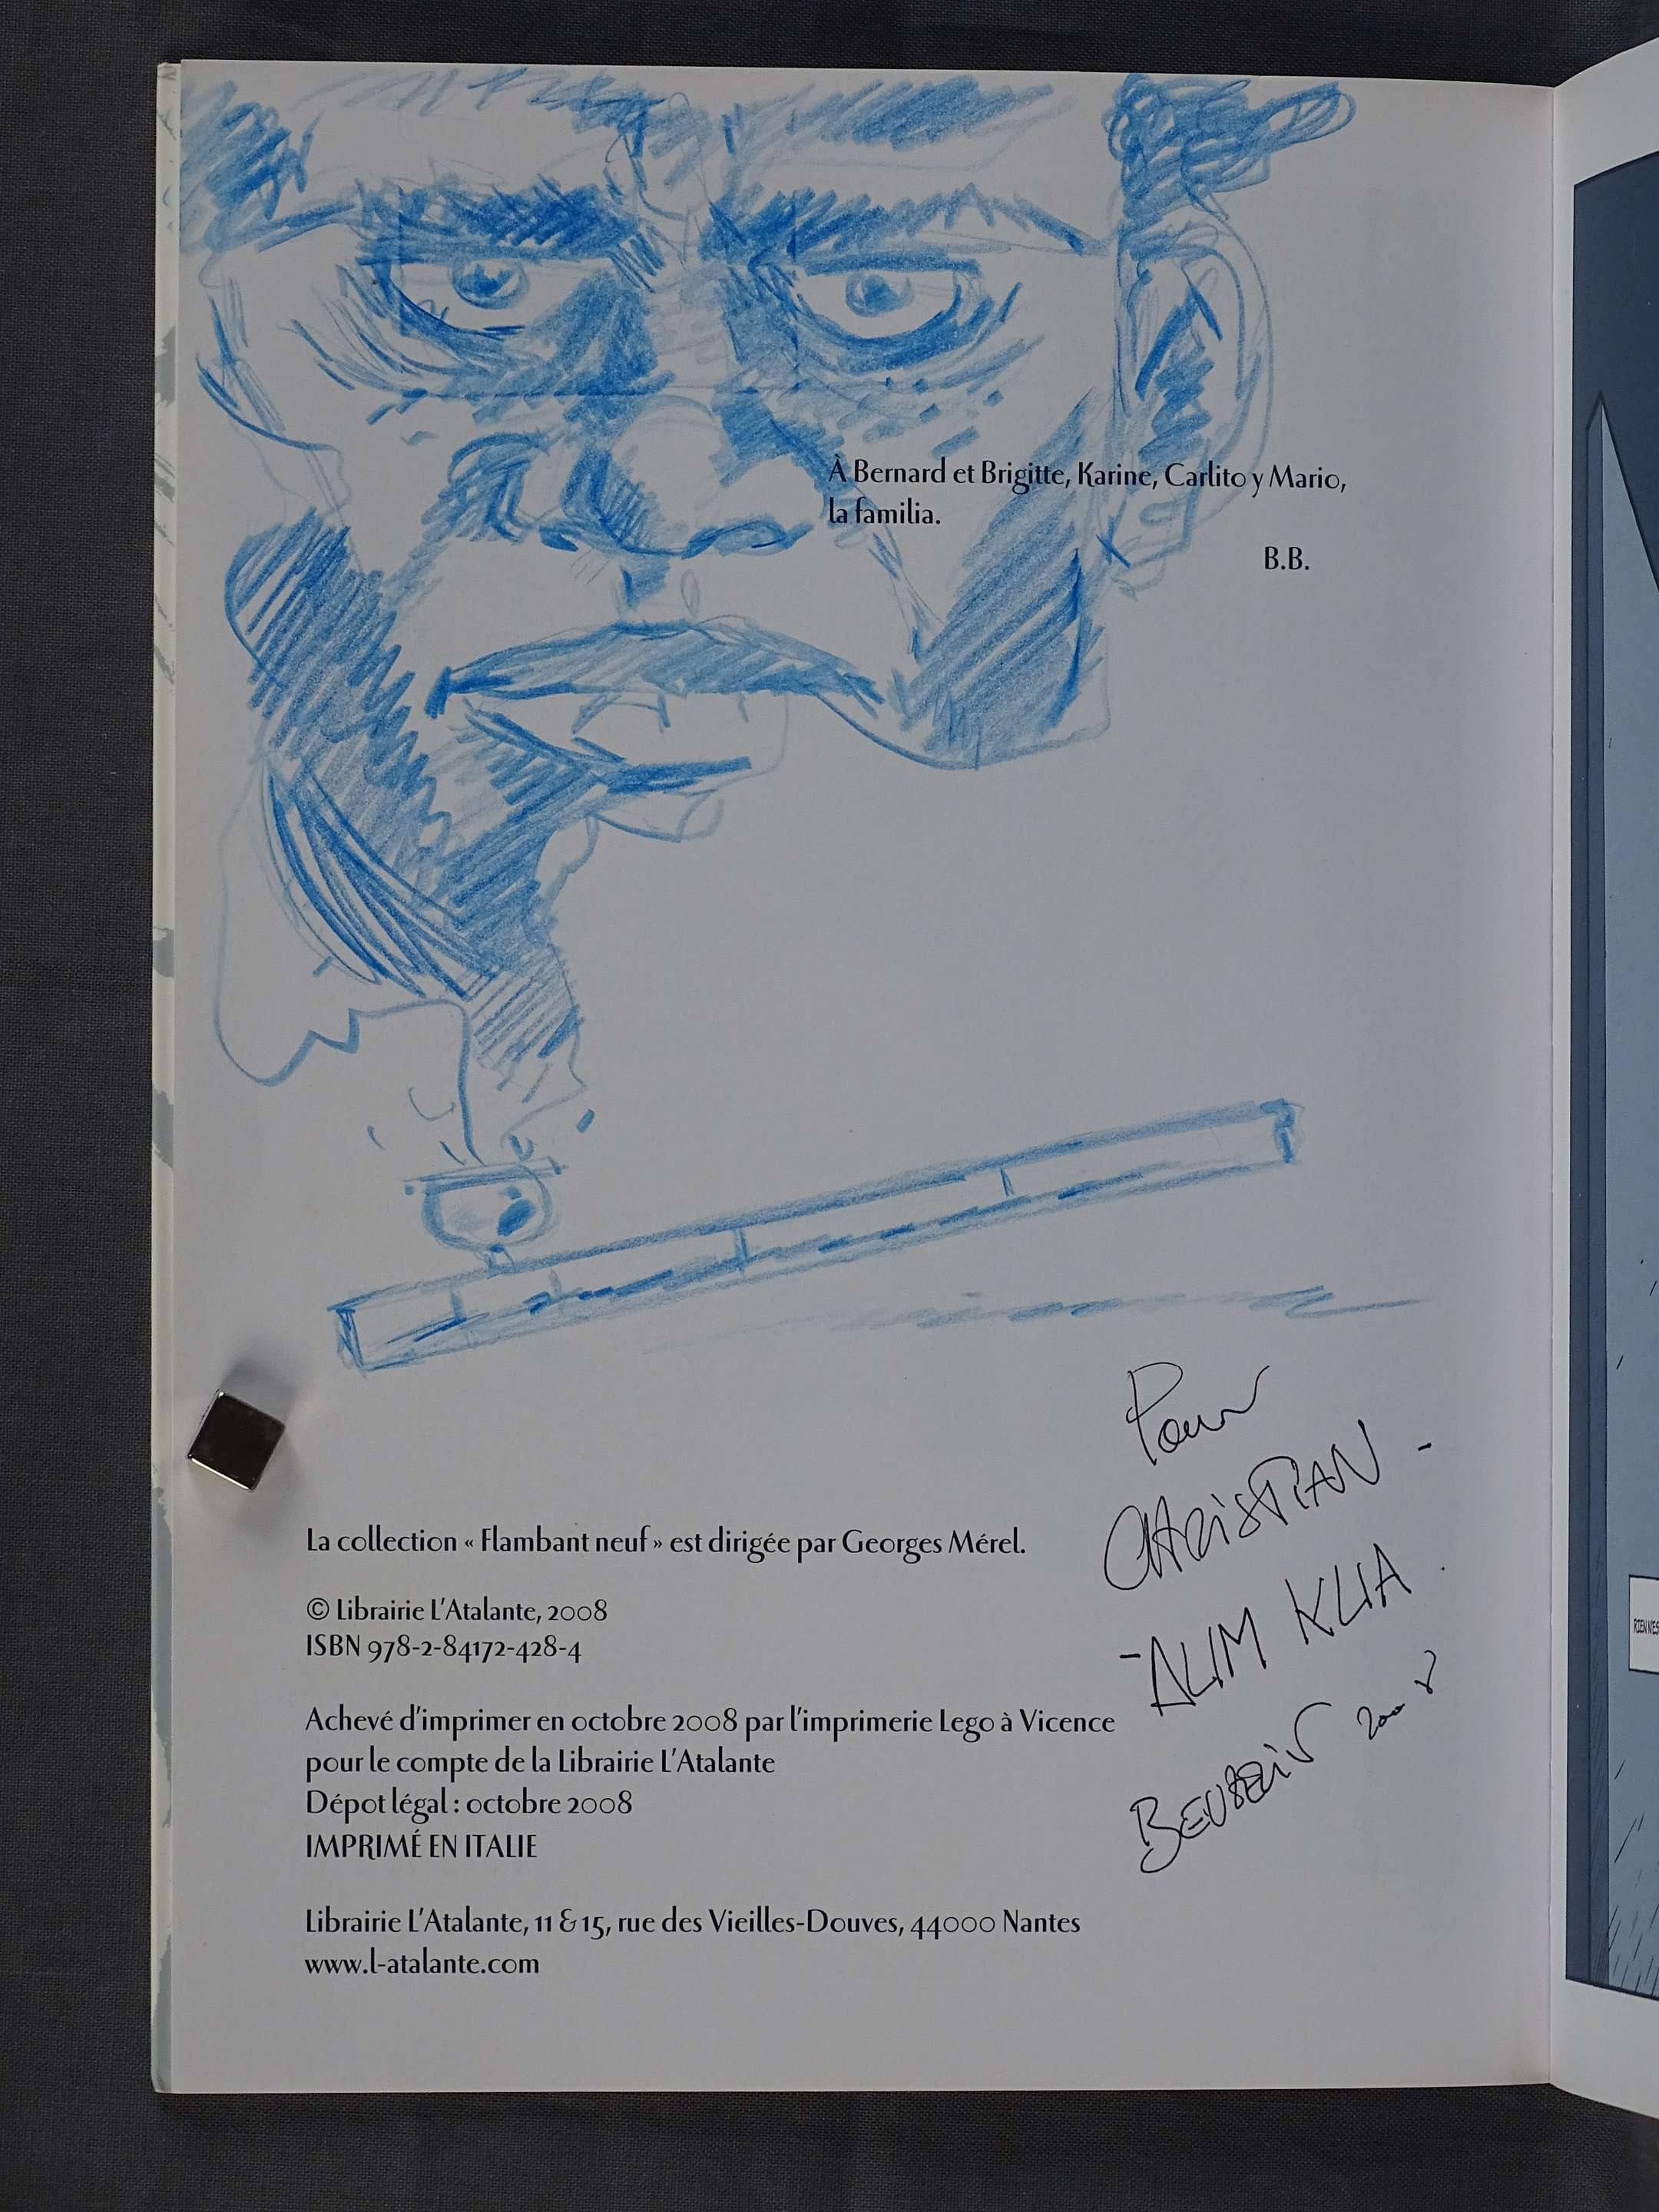 À Bernard et Brigitte, Karine, Carlito y Mario,
la familia.
B.B.
Pour
CHRISTIAN -
- ALIM KLIA
2008
La collection « Flambant neuf » est dirigée par Georges Mérel.
© Librairie L'Atalante, 2008
ISBN 978-2-84172-428-4
Achevé d'imprimer en octobre 2008 par l'imprimerie Lego à Vicence
pour le compte de la Librairie L'Atalante
Dépot légal : octobre 2008
IMPRIMÉ EN ITALIE
Librairie L'Atalante, 11 & 15, rue des Vieilles-Douves, 44000 Nantes
www.l-atalante.com